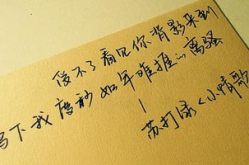 受不了看见你背影来到
写下我度秒如年难捱的离骚
—苏打绿《小情歌》